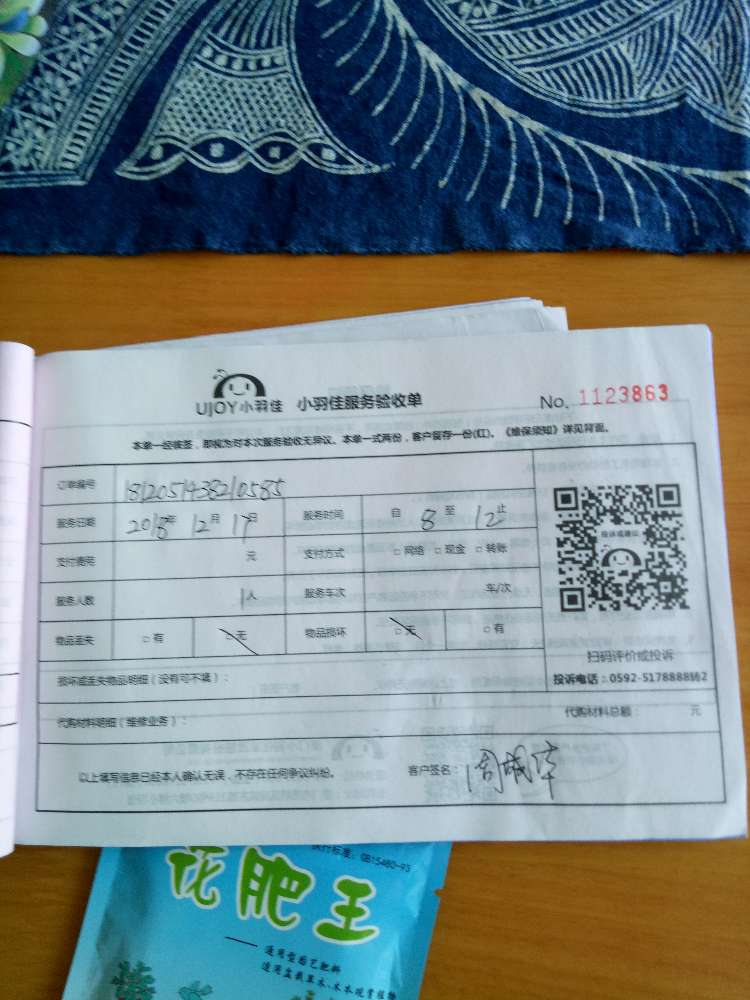 UJOY小羽佳 小羽佳服务验收单 No. 1123863
本单一经被签，即视为对本次服务验收无异议。本单一式两份，客户留存一份(红)。《维保须知》详见背面。
订单编号 1812051438210585
服务日期 2018年 12月 17日 服务时间 自 8 至 12 止
支付费用 元 支付方式 □网络 □现金 □转账
服务人数 1人 服务车次 车/次
物品丢失 □有 □无 物品损坏 □无 □有
投诉或建议
扫码评价或投诉
投诉电话：0592-5178888转2
损坏或丢失物品明细（没有可不填）：
代购材料明细（维修业务）： 代购材料总额： 元
以上填写信息已经本人确认无误，不存在任何争议纠纷。 客户签名：
执行标准：GB15480-93
花肥王
——通用型园艺肥料
适用盆栽草本、木本观赏植物